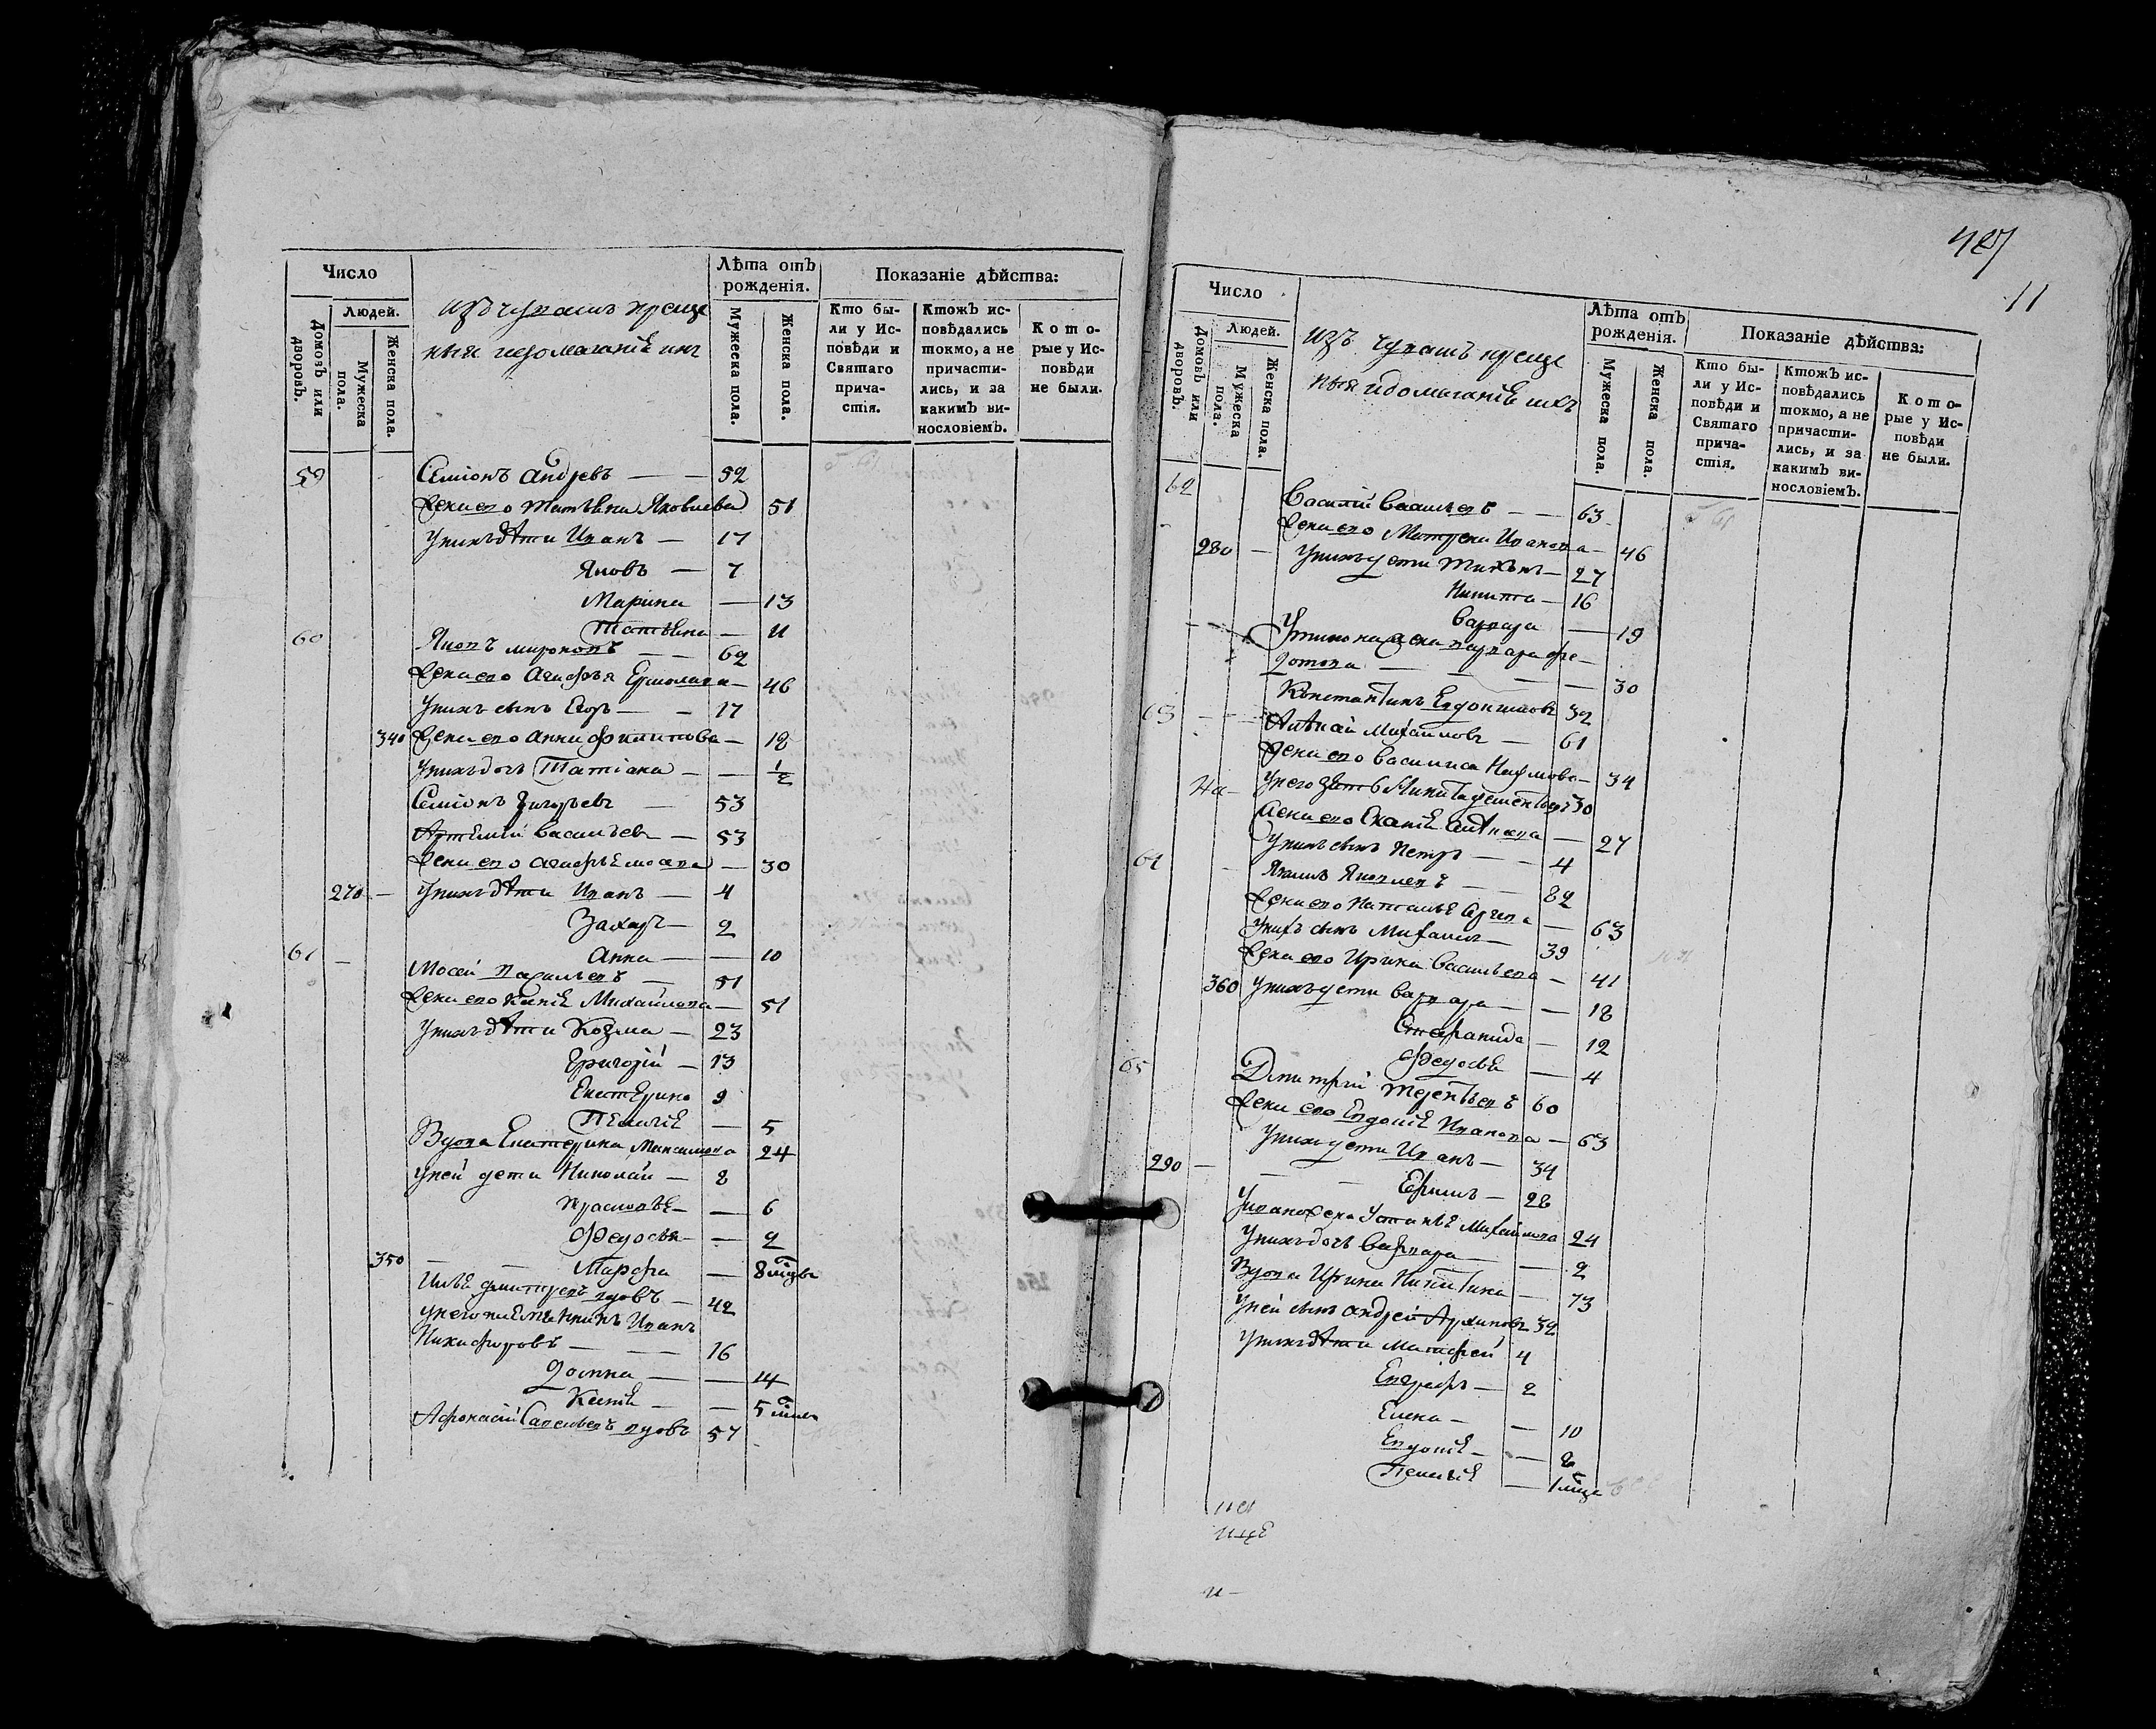 Число
Людей.
Домовъ или дворовъ.
Мужеска пола.
Женска пола.
изъ чувашъ креще
ныя и домаганіе ихъ
Лѣта отъ рожденія.
Мужеска пола.
Женска пола.
Показаніе дѣйства:
Кто были у Исповѣди и Святаго причастія.
Ктожъ исповѣдались токмо, а не причастились, и за какимъ винословіемъ.
Которые у Исповѣди не были.
59 Семіонъ Андревъ 52
Жена его Татьяна Яковлева 51
У нихъ дѣти Иванъ 17
Яковъ 7
Марина 13
Татьяна 11
60 Яковъ Мироновъ 62
Жена его Агафья Ермолаева 46
У нихъ сынъ Егоръ 17
340 Жена его Анна Филипова 18
У нихъ дочь Татіана 1/2
Семіонъ Григорьевъ 53
Артемій Васильевъ 53
Жена его Агафья 30
270 У нихъ дѣти Иванъ 4
Захаръ 2
Анна 10
61 Мосей Васильевъ 51
Жена его Ксенія Михайлова 51
У нихъ дѣти Козма 23
Григорій 13
Екатерина 9
Пелагея 5
Вдова Екатерина Максимова 24
У ней дети Николай 8
Прасковья 6
Федосья 2
350 Марфа 8 мсцъ
Илья Дмитревъ вдовъ 42
У него племянникъ Иванъ
Никифоровъ 16
Домна 14
Ксенія 5
Афонасій Савельевъ вдовъ 57
427
11
Число
Людей.
Домовъ или дворовъ.
Мужеска пола.
Женска пола.
Изъ чувашъ креще
ныя и домаганіе ихъ
Лѣта отъ рожденія.
Мужеска пола.
Женска пола.
Показаніе дѣйства:
Кто были у Исповѣди и Святаго причастія.
Ктожъ исповѣдались токмо, а не причастились, и за какимъ винословіемъ.
Которые у Исповѣди не были.
62 Василій Васильевъ 63
Жена его Матрена Иванова 46
280 У нихъ дети 27
Никита 16
Варвара 19
жена Варвара Фе
дотова 30
Константинъ Евдокимовъ 32
63 Михайловъ 61
Жена его Василиса Наумова 34
У него зять Никита 30
Жена его 27
У нихъ сынъ Петръ 4
64 Яковлевъ 82
Жена его Наталья 63
У нихъ сынъ Михаилъ 39
Жена его Ирина Васильева 41
360 У нихъ дети Варвара 18
Степанида 12
Федосья 4
65 Дмитрій Терентьевъ 60
Жена его Евдокія Иванова 63
У нихъ дети Иванъ 34
290 Ефимъ 28
У Ивана жена Устинья Михайлова 24
У нихъ дочь Варвара 2
Вдова Ирина Никитина 73
У ней сынъ Андрей Архиповъ 32
У нихъ дѣти Матфей 4
Евграфъ 2
Елена 10
Евдокія 8
Пелагея 1 мсца